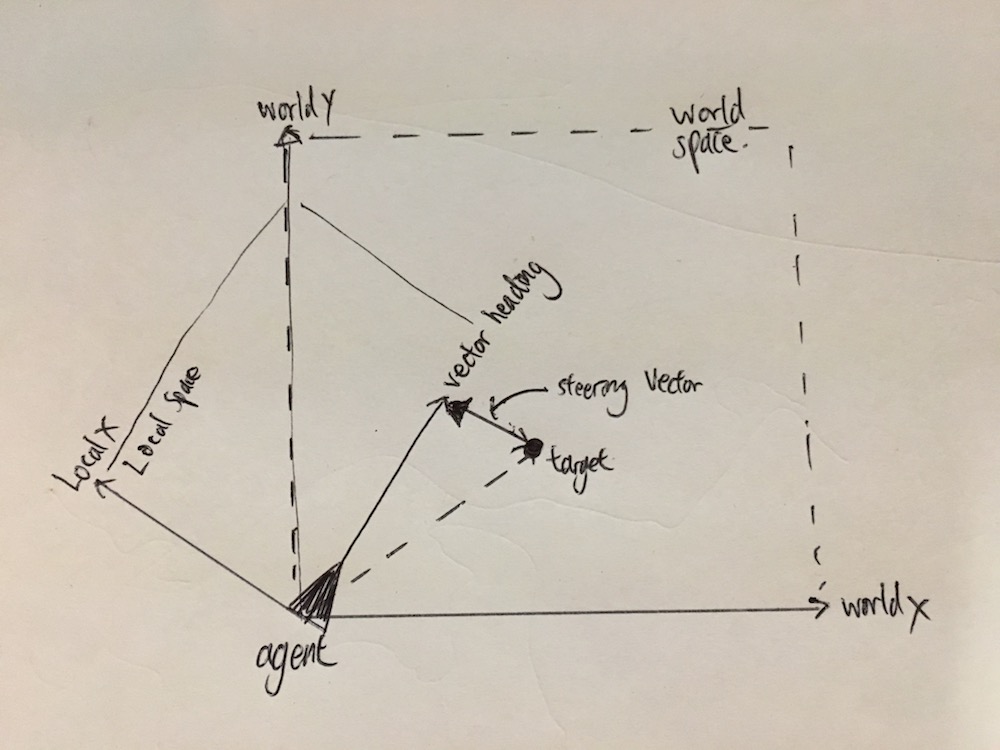 world Y
world
space.
vector heading
steering Vector
Local X
Local Space
target
world X
agent